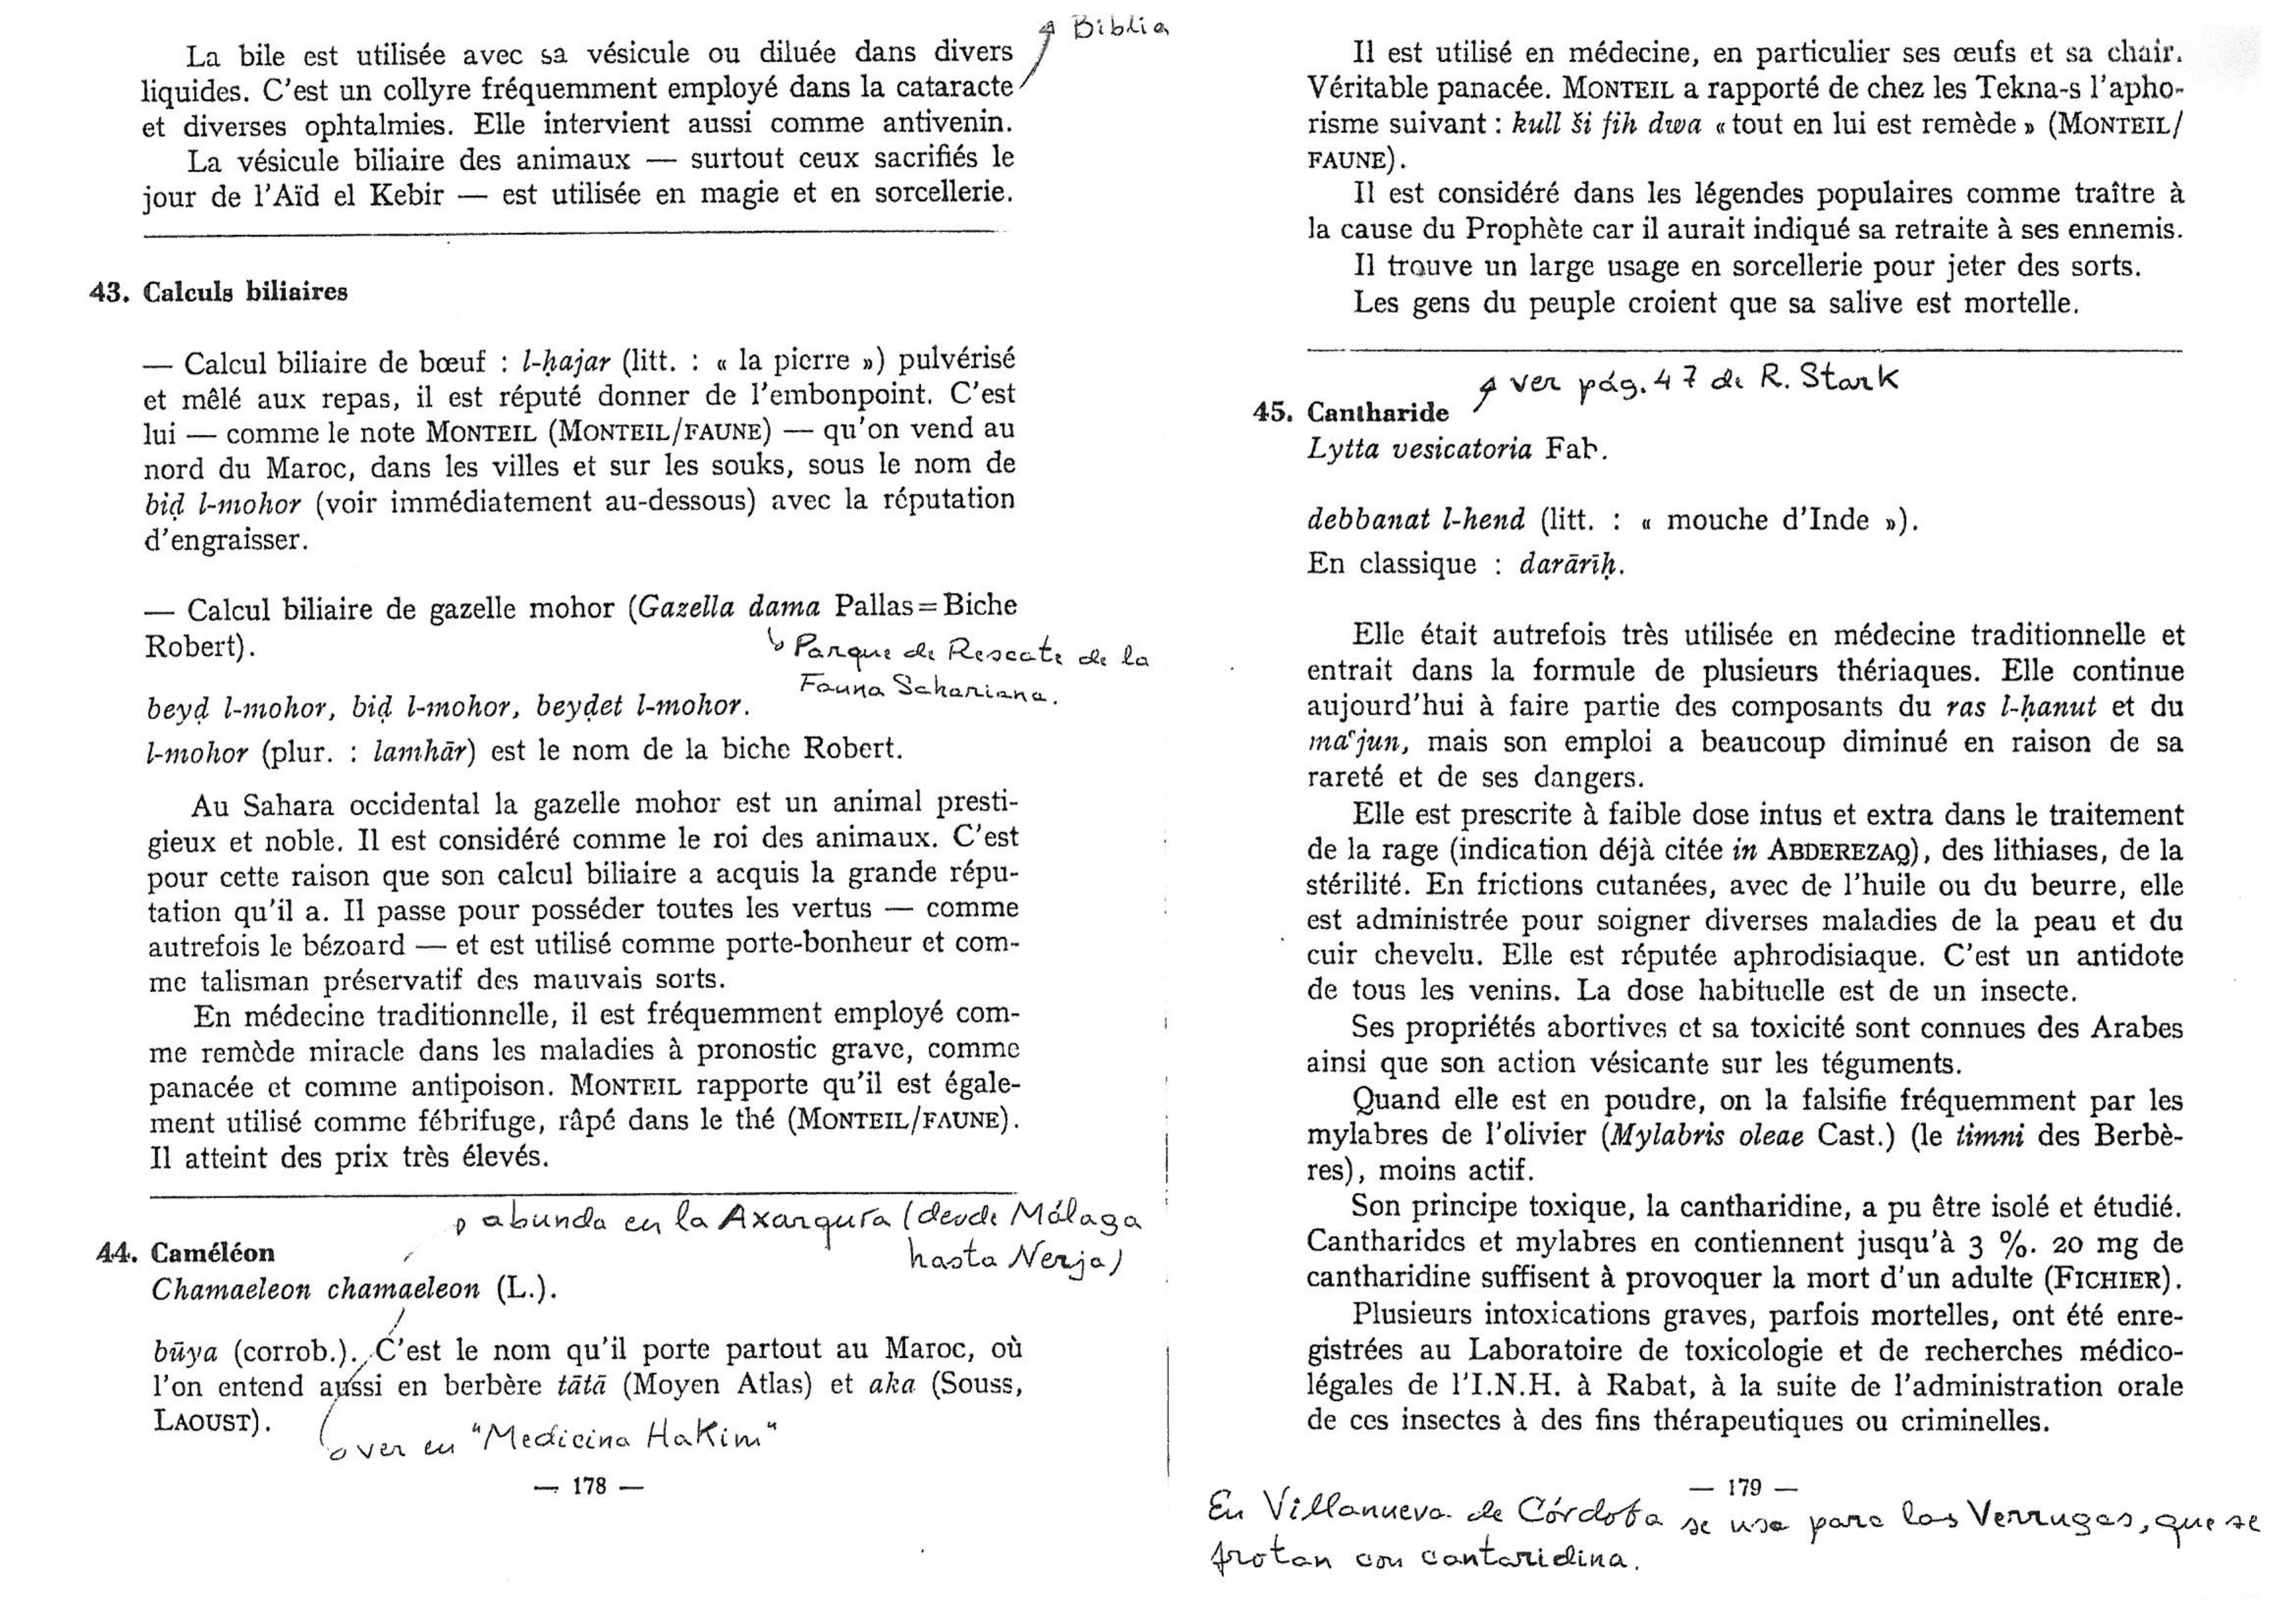 Biblia
La bile est utilisée avec sa vésicule ou diluée dans divers
liquides. C'est un collyre fréquemment employé dans la cataracte
et diverses ophtalmies. Elle intervient aussi comme antivenin.
La vésicule biliaire des animaux — surtout ceux sacrifiés le
jour de l'Aïd el Kebir — est utilisée en magie et en sorcellerie.
43. Calculs biliaires
— Calcul biliaire de bœuf : l-ḥajar (litt. : « la pierre ») pulvérisé
et mêlé aux repas, il est réputé donner de l'embonpoint. C'est
lui — comme le note MONTEIL (MONTEIL/FAUNE) — qu'on vend au
nord du Maroc, dans les villes et sur les souks, sous le nom de
biḍ l-mohor (voir immédiatement au-dessous) avec la réputation
d'engraisser.
— Calcul biliaire de gazelle mohor (Gazella dama Pallas=Biche
Robert).
Parque de Rescate de la
Fauna Sahariana.
beyḍ l-mohor, biḍ l-mohor, beyḍet l-mohor.
l-mohor (plur. : lamhār) est le nom de la biche Robert.
Au Sahara occidental la gazelle mohor est un animal presti-
gieux et noble. Il est considéré comme le roi des animaux. C'est
pour cette raison que son calcul biliaire a acquis la grande répu-
tation qu'il a. Il passe pour posséder toutes les vertus — comme
autrefois le bézoard — et est utilisé comme porte-bonheur et com-
me talisman préservatif des mauvais sorts.
En médecine traditionnelle, il est fréquemment employé com-
me remède miracle dans les maladies à pronostic grave, comme
panacée et comme antipoison. MONTEIL rapporte qu'il est égale-
ment utilisé comme fébrifuge, râpé dans le thé (MONTEIL/FAUNE).
Il atteint des prix très élevés.
abunda en la Axarquía (desde Málaga
hasta Nerja)
44. Caméléon
Chamaeleon chamaeleon (L.).
būya (corrob.). C'est le nom qu'il porte partout au Maroc, où
l'on entend aussi en berbère tātā (Moyen Atlas) et aka (Souss,
LAOUST).
ver en "Medicina Hakim"
— 178 —
Il est utilisé en médecine, en particulier ses œufs et sa chair.
Véritable panacée. MONTEIL a rapporté de chez les Tekna-s l'apho-
risme suivant : kull ši fih dwa « tout en lui est remède » (MONTEIL/
FAUNE).
Il est considéré dans les légendes populaires comme traître à
la cause du Prophète car il aurait indiqué sa retraite à ses ennemis.
Il trouve un large usage en sorcellerie pour jeter des sorts.
Les gens du peuple croient que sa salive est mortelle.
ver pág. 47 de R. Stark
45. Cantharide
Lytta vesicatoria Fab.
debbanat l-hend (litt. : « mouche d'Inde »).
En classique : darārīḥ.
Elle était autrefois très utilisée en médecine traditionnelle et
entrait dans la formule de plusieurs thériaques. Elle continue
aujourd'hui à faire partie des composants du ras l-ḥanut et du
maʿjun, mais son emploi a beaucoup diminué en raison de sa
rareté et de ses dangers.
Elle est prescrite à faible dose intus et extra dans le traitement
de la rage (indication déjà citée in ABDEREZAQ), des lithiases, de la
stérilité. En frictions cutanées, avec de l'huile ou du beurre, elle
est administrée pour soigner diverses maladies de la peau et du
cuir chevelu. Elle est réputée aphrodisiaque. C'est un antidote
de tous les venins. La dose habituelle est de un insecte.
Ses propriétés abortives et sa toxicité sont connues des Arabes
ainsi que son action vésicante sur les téguments.
Quand elle est en poudre, on la falsifie fréquemment par les
mylabres de l'olivier (Mylabris oleae Cast.) (le timni des Berbè-
res), moins actif.
Son principe toxique, la cantharidine, a pu être isolé et étudié.
Cantharides et mylabres en contiennent jusqu'à 3 %. 20 mg de
cantharidine suffisent à provoquer la mort d'un adulte (FICHIER).
Plusieurs intoxications graves, parfois mortelles, ont été enre-
gistrées au Laboratoire de toxicologie et de recherches médico-
légales de l'I.N.H. à Rabat, à la suite de l'administration orale
de ces insectes à des fins thérapeutiques ou criminelles.
— 179 —
En Villanueva de Córdoba se usa para las Verrugas, que se
frotan con cantaridina.